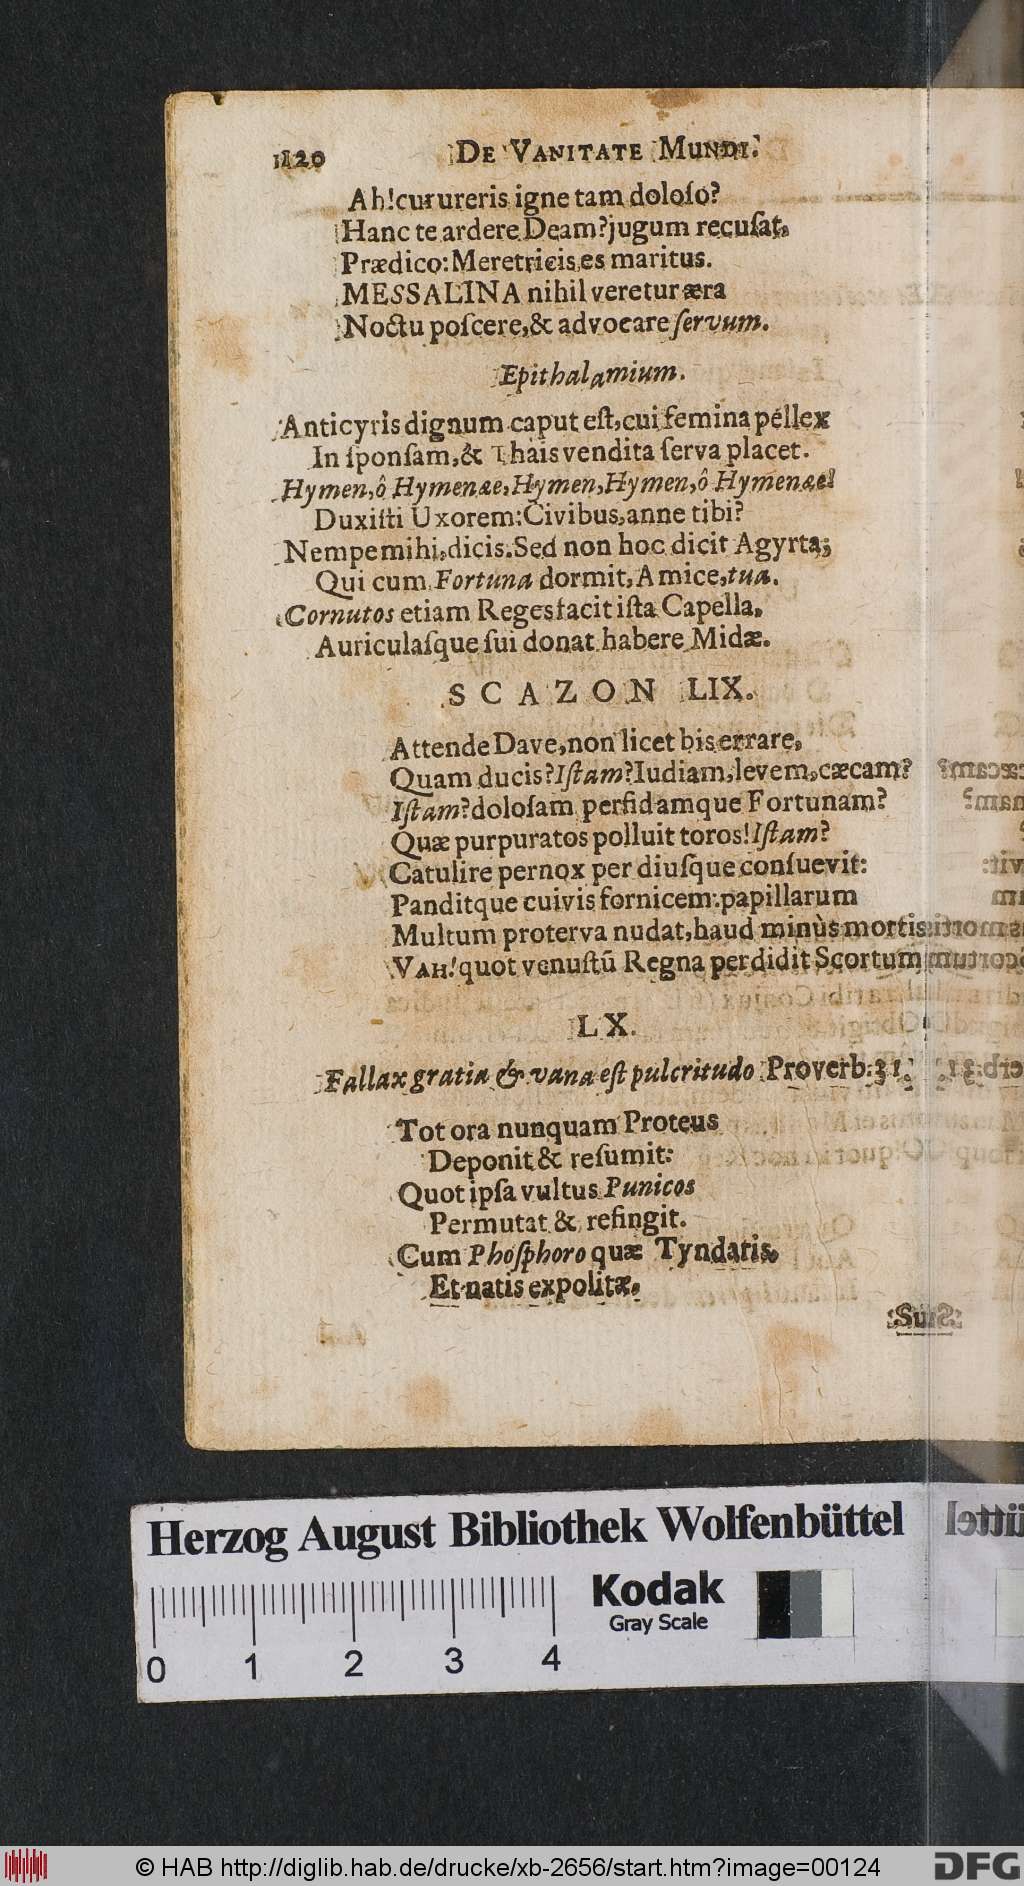 120 DE VANITATE MUNDI.
Ah! cur ureris igne tam doloſo?
Hanc te ardere Deam? jugum recuſat,
Prædico: Meretricis es maritus.
MESSALINA nihil veretur æra
Noctu poſcere, & advocare ſervum.
Epithalamium.
Anticyris dignum caput eſt, cui femina pellex
In ſponſam, & Thais vendita ſerva placet.
Hymen, ô Hymenæe, Hymen, Hymen, ô Hymenæe!
Duxiſti Uxorem: Civibus, anne tibi?
Nempe mihi, dicis. Sed non hoc dicit Agyrta;
Qui cum Fortuna dormit, Amice, tua.
Cornutos etiam Reges facit iſta Capella,
Auriculaſque ſui donat habere Midæ.
SCAZON LIX.
Attende Dave, non licet bis errare,
Quam ducis? Iſtam? Iudiam, levem, cæcam?
Iſtam? doloſam perfidamque Fortunam?
Quæ purpuratos polluit toros! Iſtam?
Catulire pernox per diuſque conſuevit:
Panditque cuivis fornicem: papillarum
Multum proterva nudat, haud minùs mortis:
VAH! quot venuſtū Regna perdidit Scortum
LX.
Fallax gratia & vana eſt pulcritudo Proverb: 31.
Tot ora nunquam Proteus
Deponit & reſumit:
Quot ipſa vultus Punicos
Permutat & refingit.
Cum Phoſphoro quæ Tyndaris,
Et natis expolitæ.
Herzog August Bibliothek Wolfenbüttel
Kodak
Gray Scale
0 1 2 3 4
© HAB http://diglib.hab.de/drucke/xb-2656/start.htm?image=00124
DFG